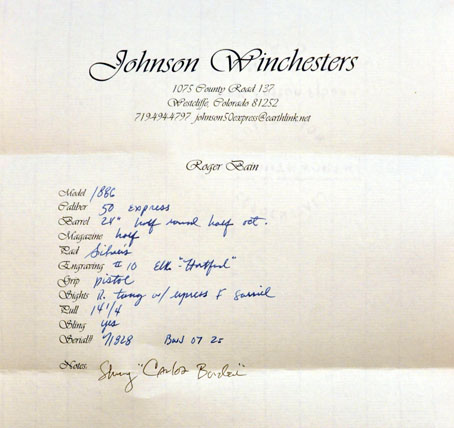 Johnson Winchesters
1075 County Road 137
Westcliffe, Colorado 81252
719-494-4797 johnson50express@earthlink.net
Roger Bain
Model 1886
Caliber 50 express
Barrel 24" half round half oct.
Magazine half
Pad
Engraving #10 Elk "Hartford"
Grip pistol
Sights R. tang w/ express F
Pull 14 1/4
Sling yes
Serial#
Notes: "Carlos